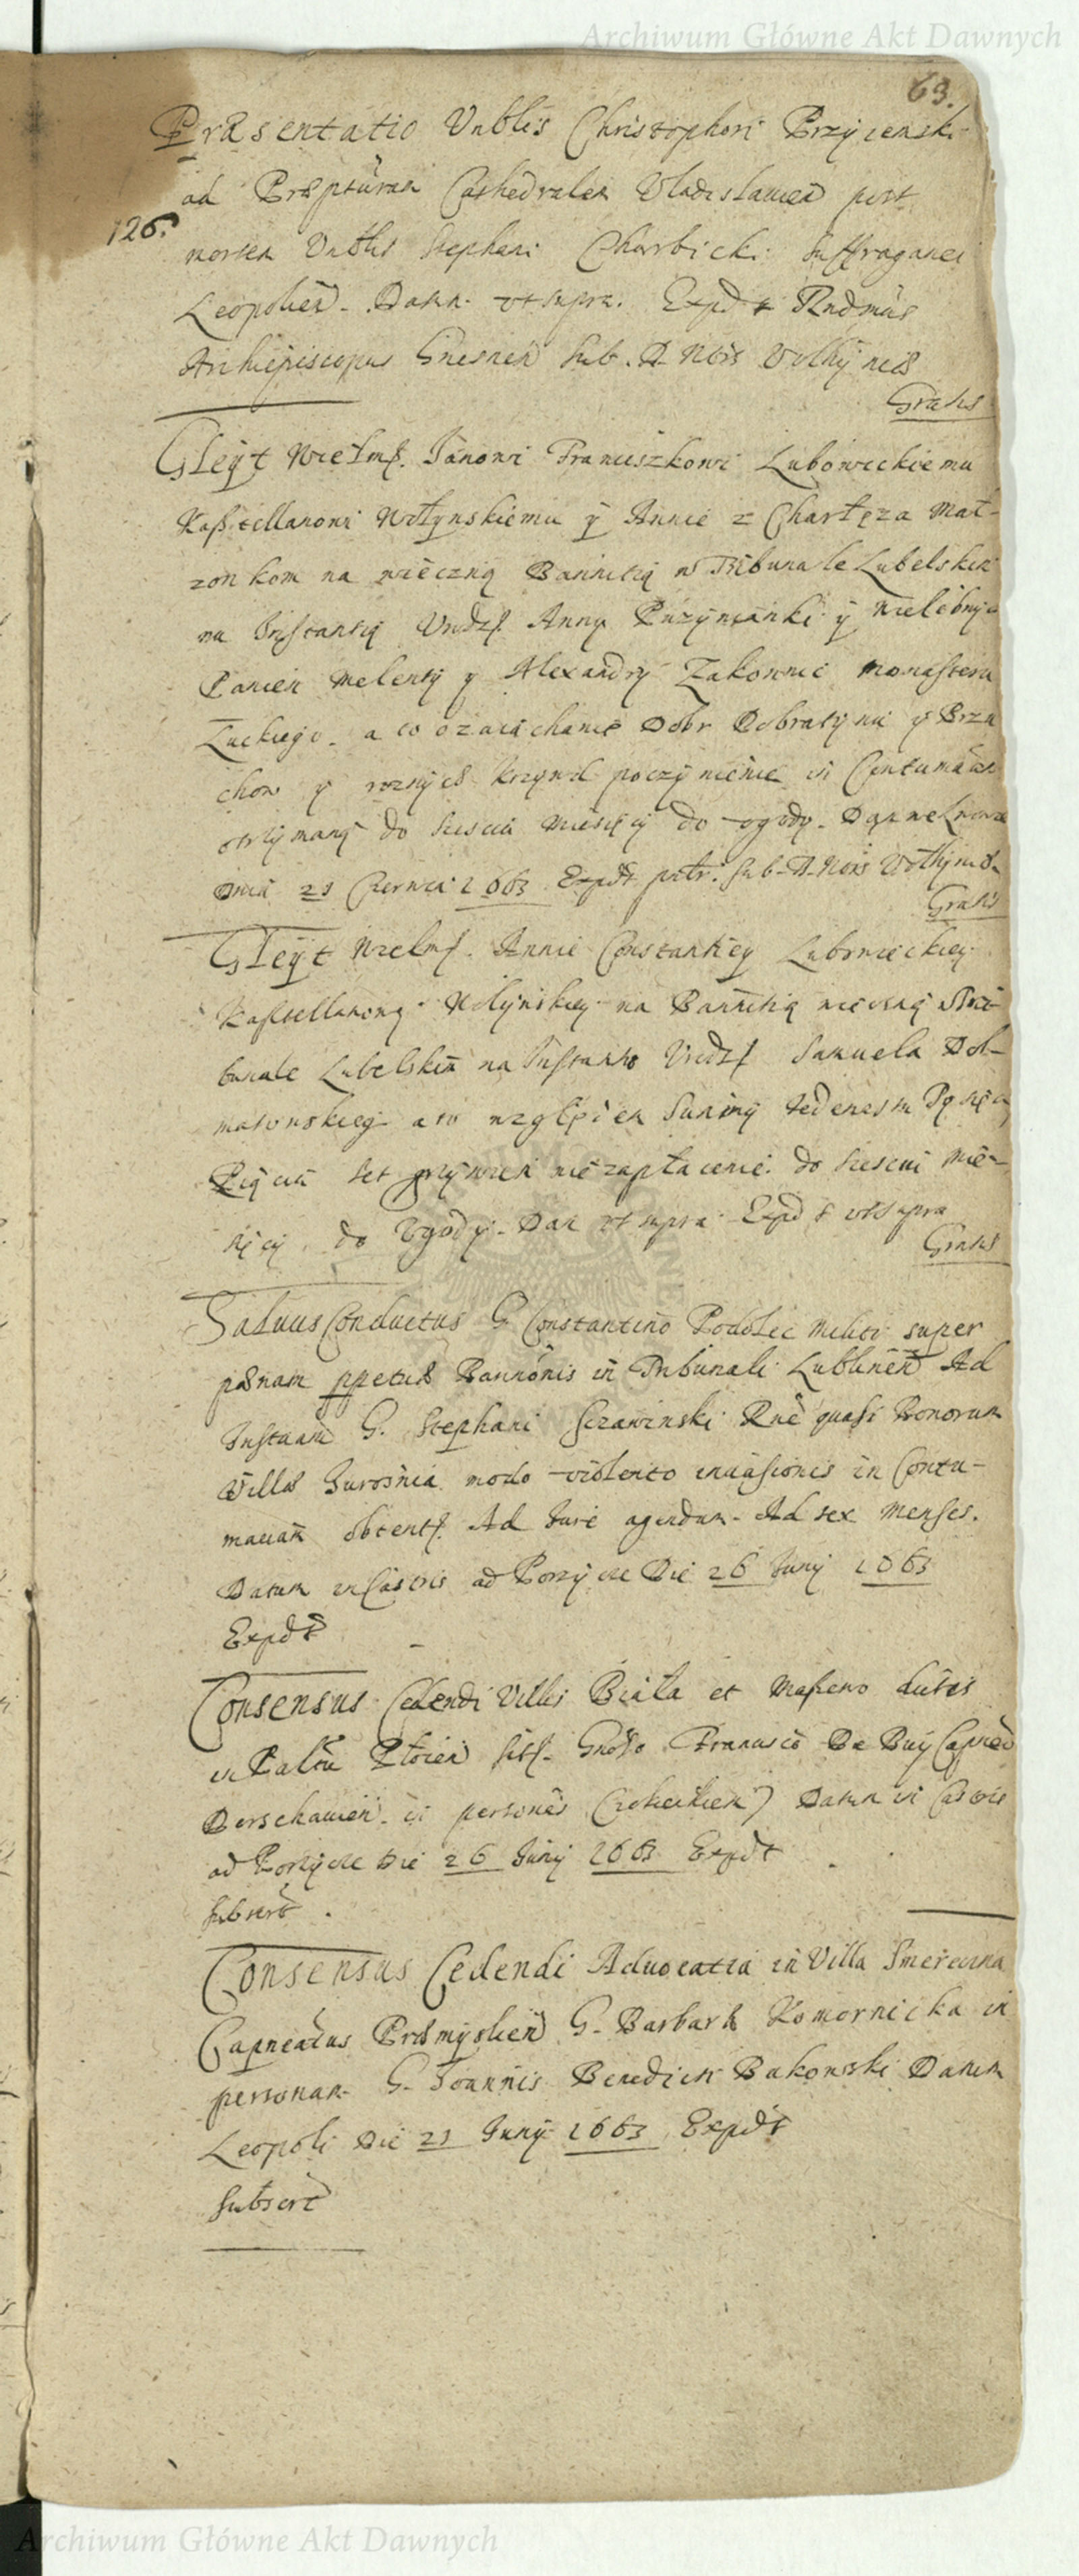 Archiwum Główne Akt Dawnych
63.
Præsentatio Vnblis Christophori Przyiemski
ad Præpturam Cathedralem Vladislauien̄ post
126.
mortem Vnblis Stephani Charbicki Suffraganei
Leopolien̄. Datum vt supra. Expdt Rndmus
Archiepiscopus Gnesnen̄ Sub. A. Nris Volhyniæ
Gratis
Gleyt Wielmſ. Janowi Franciszkowi Lubowieckiemu
Kaſztellanowi Wołynskiemu y Annie z Charłęza Mał-
zonkom na wieczną Bannitią w Tribunale Lubelskim
na Inſtantią Vrodzſ. Anny Puzynianki y Wielebnych
Panien Melenty y Alexandry Zakonnic monaſteru
Łuckiego. a to o zaiachanie Dobr Dobratynia y Brza
chow y roznych krzywd poczynienie in Contumatiam
otrzymaną do szesciu Miesięcy do vgody. Dan we Lwowie
Dnia 21 Czerwca 1663 Expdt Sub. A. Nris Wolhyniæ.
Gratis
Gleyt Wielmſ. Annie Constantiey Lubowieckiey
Kaſztellanowy Wołynskiey na Bannitią wieczną w Tri-
bunale Lubelskim na Inſtantią Vrodzſ Samuela Dol-
matowskieg a to względem Summy Jedenastu Tysięcy
Pięciu set grzywien niezapłacenie. do szesciu Mie-
sięcy do Vgody. Dan vt supra. Expdt vt supra
Gratis
Saluus Conductus G. Constantino Podolec Militi super
pænam ppetuæ Bannōnis in Tribunali Lublinen̄ Ad
Instaām G. Stephani Sczawinski Rne quasi Bonorum
Villæ Zurosnia modo violento inuasionis in Contu-
maciam obtentſ. Ad Jure agendum. Ad sex Menses.
Datum in Castris ad Borzycze Die 26 Juny 1663
Expdt
Consensus Cedendi Villis Biała et Maszewo dictis
in Paltu Płocen̄ sitſ. Gnoso Francisco De Buy Capneo
Derschauien̄. in personas Datum in Castris
ad Borzycze Die 26 Juny 1663 Expdt
subscrt.
Consensus Cedendi Aduocatia in Villa Smereczna
Capneatus Præmyslien̄ G. Barbaræ Komornicka in
personam G. Joannis Benedicti Bakowski Datum
Leopoli Die 21 Juny 1663 Expdt
subscrt
Archiwum Główne Akt Dawnych